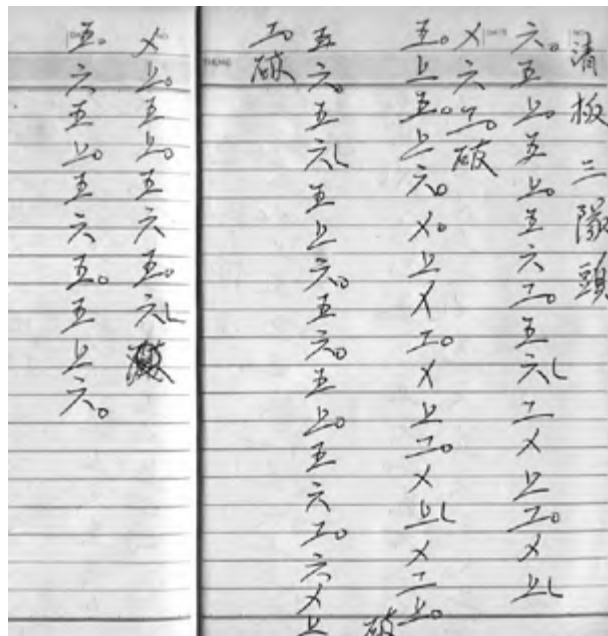 清板三隊頭
六。五上。五上。五六工。五六ㄴ工乂上工。乂上ㄴ
乂六工。破
五。上五。上六。乂。上乂工。乂上工。乂上ㄴ乂工上。
破
五六。五六ㄴ五上六。五六。五上。五六工。六乂上
工。破
乂上。五上。五六五。六ㄴ
五。六五上。五六五。五上六。